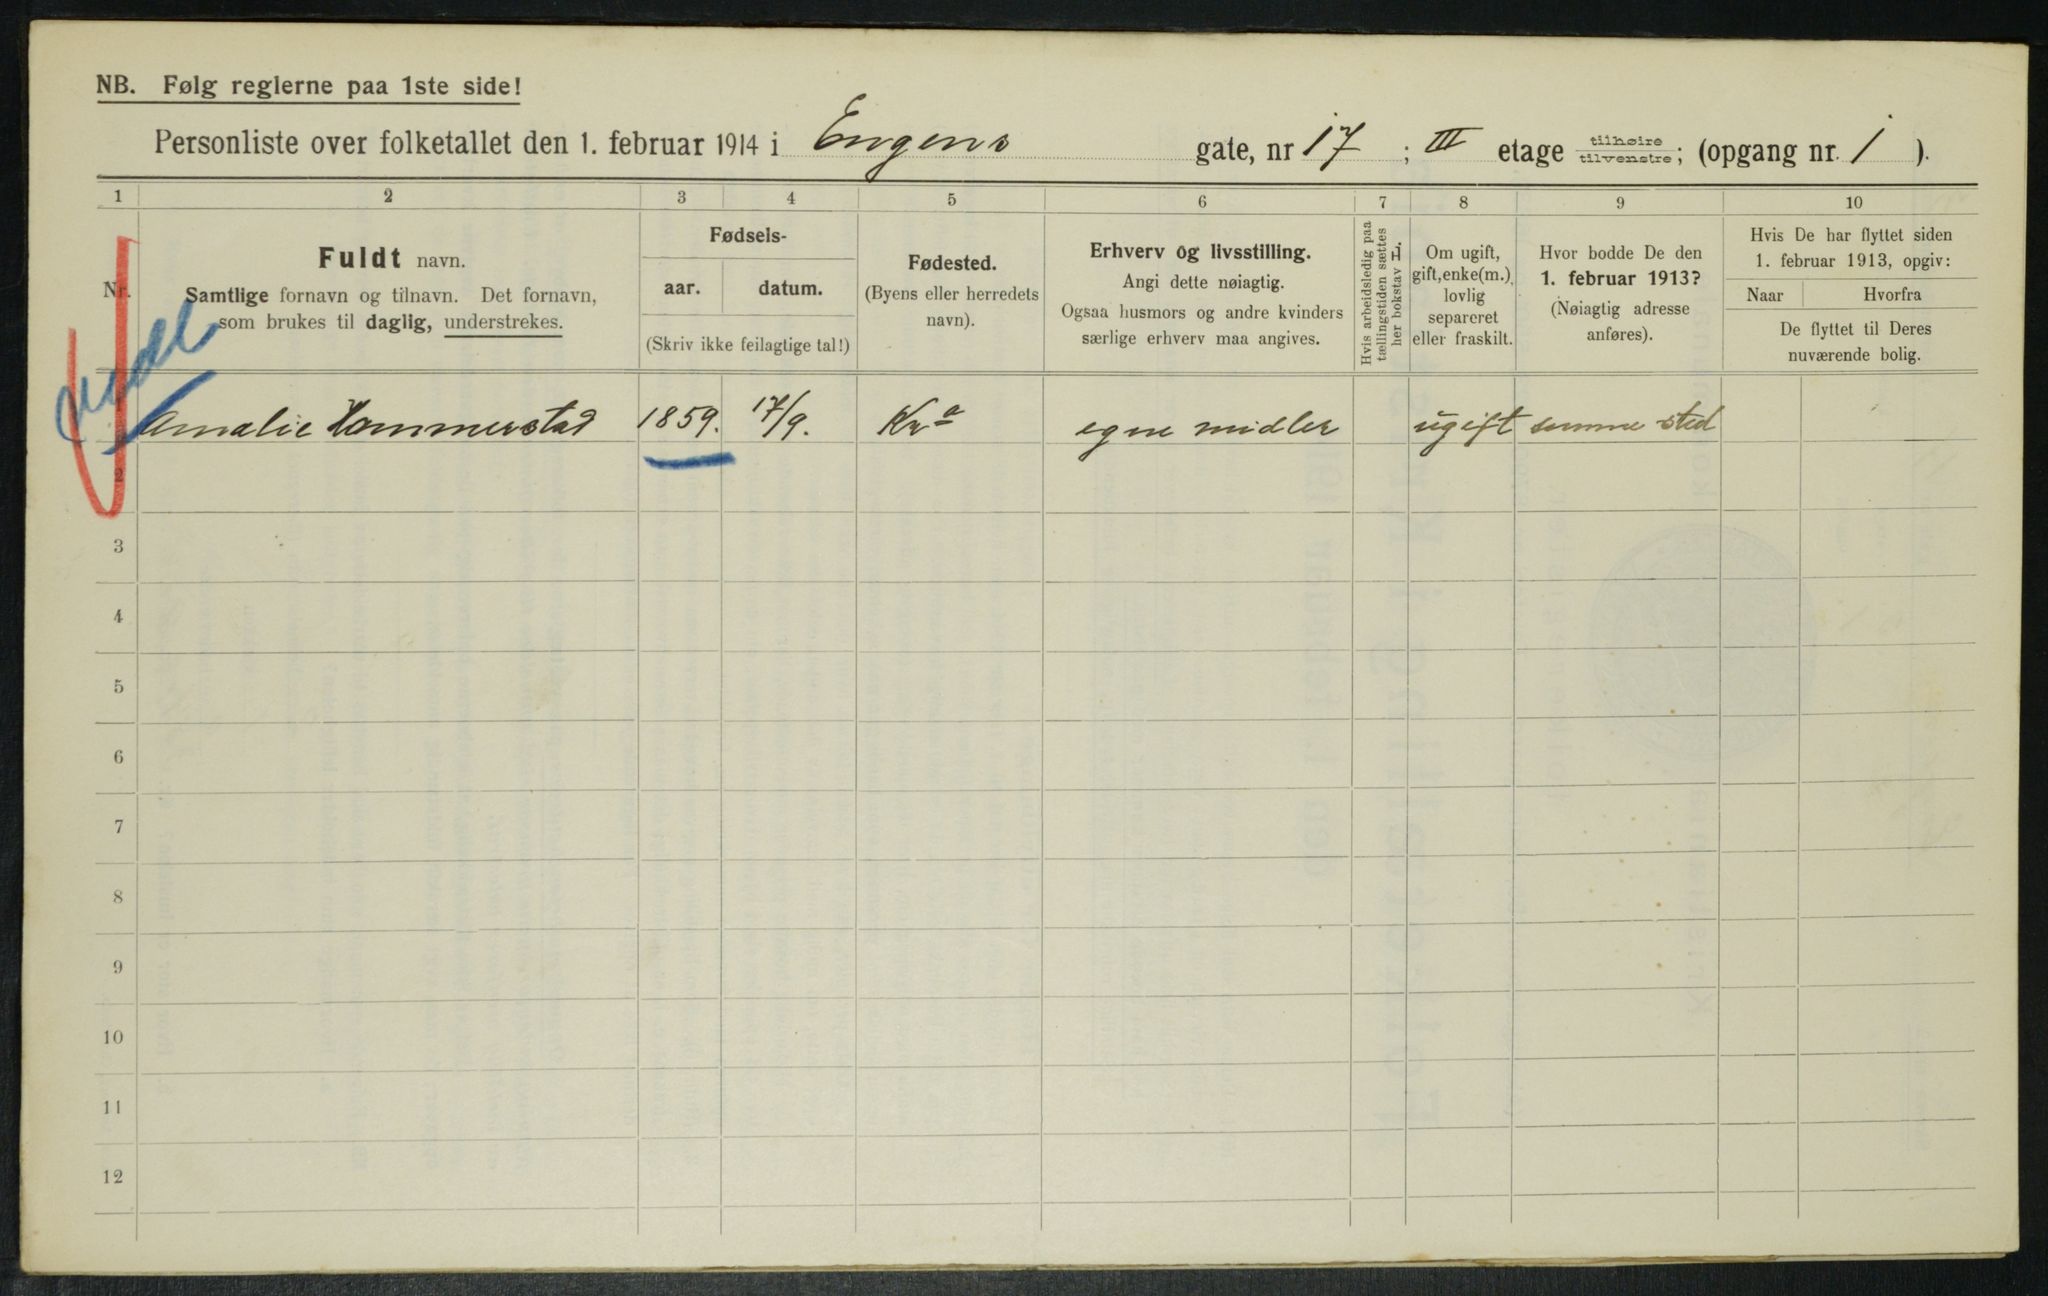 NB. Følg reglerne paa 1ste side!
Personliste over folketallet den 1. februar 1914 i Engens gate, nr 17 ; III etage tilhøire tilvenstre; (opgang nr. 1 ).
1 2 3 4 5 6 7 8 9 10
Nr.
Fuldt navn.
Samtlige fornavn og tilnavn. Det fornavn,
som brukes til daglig, understrekes.
Fødsels-
aar. datum.
(Skriv ikke feilagtige tal!)
Fødested.
(Byens eller herredets
navn).
Erhverv og livsstilling.
Angi dette nøiagtig.
Ogsaa husmors og andre kvinders
særlige erhverv maa angives.
Hvis arbeidsledig paa
tællingstiden sættes
her bokstav L.
Om ugift,
gift, enke(m.),
lovlig
separeret
eller fraskilt.
Hvor bodde De den
1. februar 1913?
(Nøiagtig adresse
anføres).
Hvis De har flyttet siden
1. februar 1913, opgiv:
Naar Hvorfra
De flyttet til Deres
nuværende bolig.
Amalie Hammerstad 1859. 17/9. Kra egne midler ugift samme sted
2
3
4
5
6
7
8
9
10
11
12